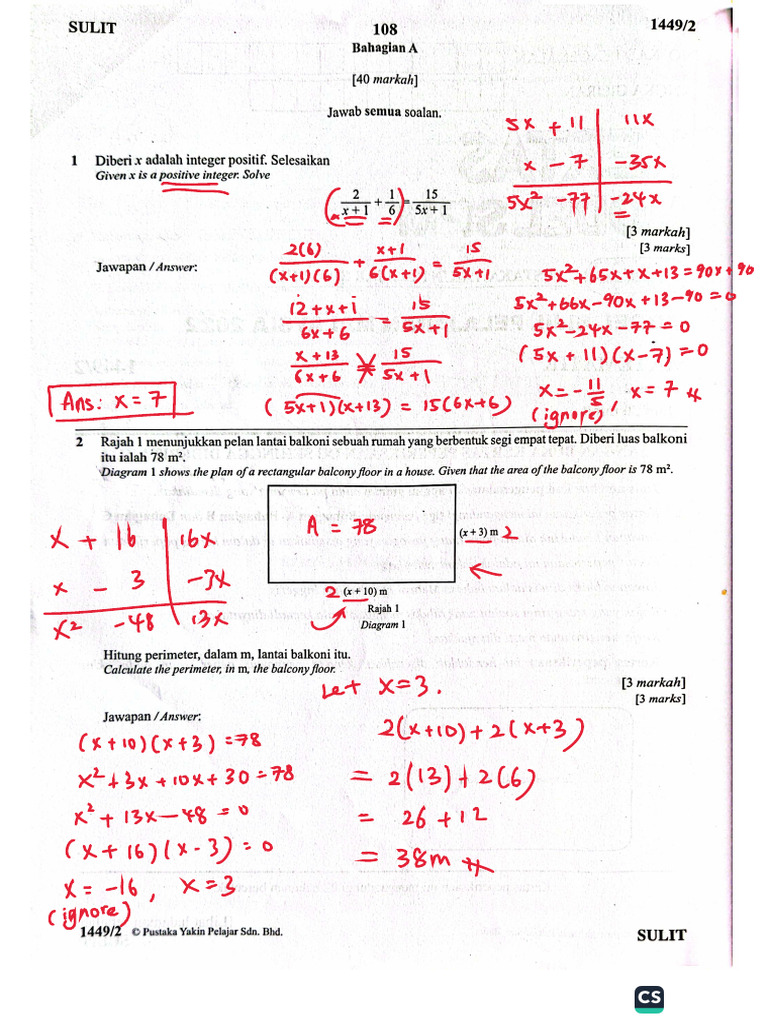 SULIT 108 1449/2
Bahagian A
[40 markah]
Jawab semua soalan.
5x + 11 | 11x
x - 7 | -35x
5x² -77 | -24x
1 Diberi x adalah integer positif. Selesaikan
Given x is a positive integer. Solve
(2/(x + 1) + 1/6) = 15/(5x + 1)
[3 markah]
[3 marks]
Jawapan / Answer:
2(6)/((x+1)(6)) + (x+1)/(6(x+1)) = 15/(5x+1)
(12+x+1)/(6x+6) = 15/(5x+1)
(x+13)/(6x+6) = 15/(5x+1)
(5x+1)(x+13) = 15(6x+6)
5x²+65x+x+13=90x+90
5x²+66x-90x+13-90=0
5x²-24x-77=0
(5x+11)(x-7)=0
x=-11/5, x=7
(ignore)
Ans: x=7
2 Rajah 1 menunjukkan pelan lantai balkoni sebuah rumah yang berbentuk segi empat tepat. Diberi luas balkoni
itu ialah 78 m².
Diagram 1 shows the plan of a rectangular balcony floor in a house. Given that the area of the balcony floor is 78 m².
A = 78
(x + 3) m 2
2 (x + 10) m
Rajah 1
Diagram 1
x + 16 | 16x
x - 3 | -3x
x² -48 | 13x
Hitung perimeter, dalam m, lantai balkoni itu.
Calculate the perimeter, in m, the balcony floor.
[3 markah]
[3 marks]
Jawapan / Answer:
(x+10)(x+3)=78
x²+3x+10x+30=78
x²+13x-48=0
(x+16)(x-3)=0
x=-16, x=3
(ignore)
Let x=3.
2(x+10)+2(x+3)
= 2(13)+2(6)
= 26+12
= 38m
1449/2 © Pustaka Yakin Pelajar Sdn. Bhd.
SULIT
CS